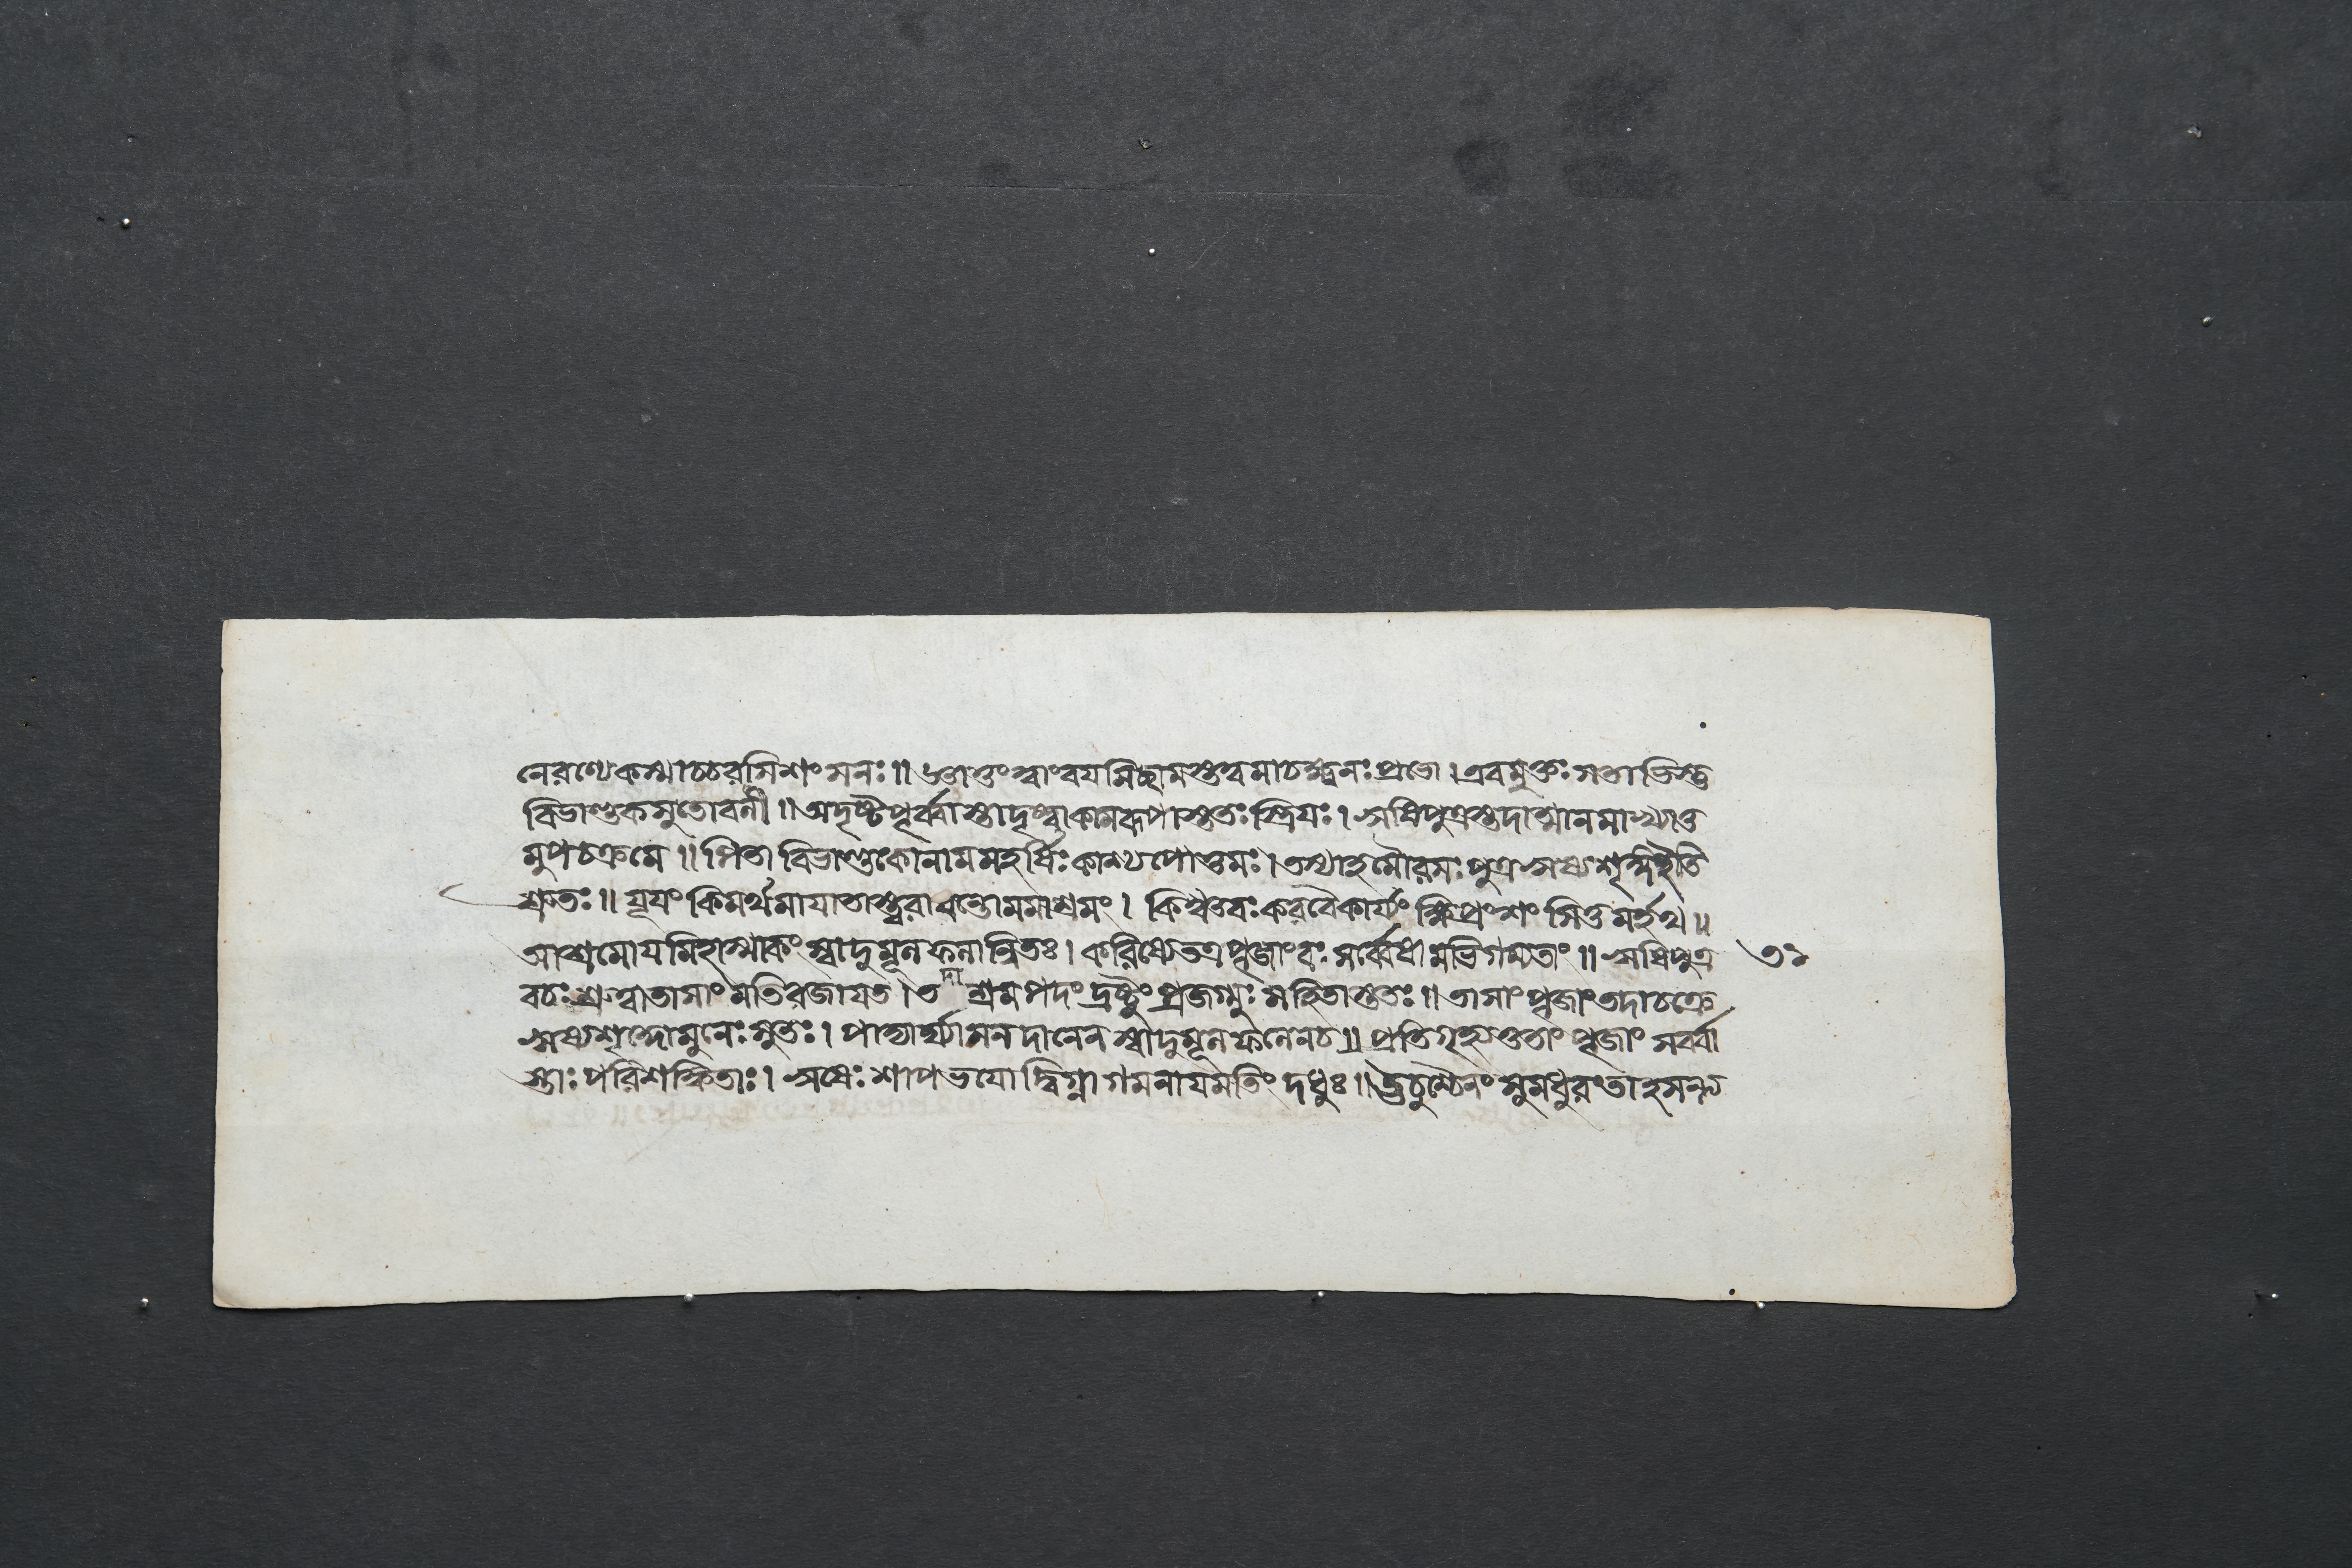 নেরণ্যেকস্মাচ্চরসিশংসনঃ॥ জ্ঞাতুংত্বাংবযমিচ্ছামস্তত্ত্বমাচক্ষ্বনঃপ্রভো।এবমুক্তঃসতাভিস্তু
বিভাণ্ডকসুতোবশী॥অদৃষ্টপূর্ব্বাস্তাদৃষ্ট্বাকামরূপাস্ততঃস্ত্রিযঃ।ঋষিপুত্রস্তদাত্মানমাখ্যাতু
মুপচক্রমে॥পিতা বিভাণ্ডঃকোনামমহর্ষিঃকাশ্যপোত্তমঃ।তস্যাহমৌরসঃপুত্রঋষ্যশৃঙ্গইতি
শ্রুতঃ॥ যূযং কিমর্থমাযাতাস্ত্বরাবন্তোমমাশ্রমং। কিম্বত্তবঃকরবৈকার্য্যং ক্ষিপ্রংশংসিতুমর্হথ॥
আশ্রমোযমিহাস্মাকং স্বাদুমূলফলান্বিতঃ। করিষ্যেতত্রপূজাংবঃসর্ব্বেষামভিগম্যতাং॥ঋষিপুত্র ৩২
বচঃশ্রুত্বাতাসাং মতিরজাযত।তমাশ্রমপদং দ্রষ্টুং প্রজগ্মুঃ সহিতাস্ততঃ॥ তাসাং পূজাং তদাচক্রে
ঋষ্যশৃঙ্গোমুনেঃসুতঃ। পাদ্যার্ঘ্যাসনদানেন স্বাদুমূলফলেনচ॥ প্রতিগৃহ্যতুতাং পূজাং সবর্ব্বা
স্তাঃ পরিশঙ্কিতাঃ।ঋষেঃ শাপভযোদ্বিগ্না গমনাযমতিং দধুঃ॥ঊচুশ্চৈনং সুমধুরংতাহসন্ত্য